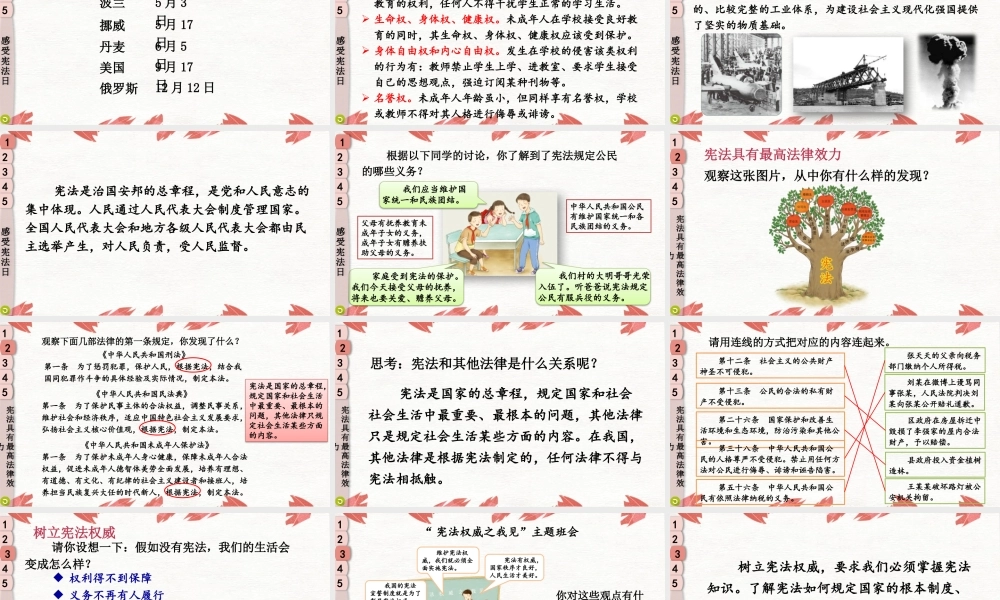 5
感受宪法日
波兰
5月3日
挪威
5月17日
丹麦
6月5日
美国
9月17日
俄罗斯
12月12日
5
感受宪法日
教育的权利，任何人不得干扰学生正常的学习生活。
生命权、身体权、健康权。未成年人在学校接受良好教
育的同时，其生命权、身体权、健康权应该受到保护。
身体自由权和内心自由权。发生在学校的侵害该类权利
的行为有：教师禁止学生上学、进教室、要求学生接受
自己的思想观点，强迫订阅某种刊物等。
名誉权。未成年人年龄虽小，但同样享有名誉权，学校
或教师不得对其人格进行侮辱或诽谤。
5
感受宪法日
的、比较完整的工业体系，为建设社会主义现代化强国提供
了坚实的物质基础。
1
2
3
4
5
感受宪法日
宪法是治国安邦的总章程，是党和人民意志的
集中体现。人民通过人民代表大会制度管理国家。
全国人民代表大会和地方各级人民代表大会都由民
主选举产生，对人民负责，受人民监督。
1
2
3
4
5
感受宪法日
根据以下同学的讨论，你了解到了宪法规定公民
的哪些义务？
我们应当维护国
家统一和民族团结。
中华人民共和国公民
有维护国家统一和各
民族团结的义务。
父母有抚养教育未
成年子女的义务，
成年子女有赡养扶
助父母的义务。
家庭受到宪法的保护。
我们今天接受父母的抚养，
将来也要关爱、赡养父母。
我们村的大明哥哥光荣
入伍了。听爸爸说宪法规定
公民有服兵役的义务。
1
2
3
4
5
宪法具有最高法律效力
宪法具有最高法律效力
观察这张图片，从中你有什么样的发现？
宪法
1
2
3
4
5
宪法具有最高法律效力
观察下面几部法律的第一条规定，你发现了什么？
《中华人民共和国刑法》
第一条 为了惩罚犯罪，保护人民，根据宪法，结合我
国同犯罪作斗争的具体经验及实际情况，制定本法。
《中华人民共和国民法典》
第一条 为了保护民事主体的合法权益，调整民事关系，
维护社会和经济秩序，适应中国特色社会主义发展要求，
弘扬社会主义核心价值观，根据宪法，制定本法。
《中华人民共和国未成年人保护法》
第一条 为了保护未成年人身心健康，保障未成年人合法
权益，促进未成年人德智体美劳全面发展，培养有理想、
有道德、有文化、有纪律的社会主义建设者和接班人，培
养担当民族复兴大任的时代新人，根据宪法，制定本法。
宪法是国家的总章程，
规定国家和社会生活
中最重要、最根本的
问题，其他法律只规
定社会生活某些方面
的内容。
1
2
3
4
5
宪法具有最高法律效力
思考：宪法和其他法律是什么关系呢？
宪法是国家的总章程，规定国家和社会
社会生活中最重要、最根本的问题，其他法律
只是规定社会生活某些方面的内容。在我国，
其他法律是根据宪法制定的，任何法律不得与
宪法相抵触。
1
2
3
4
5
宪法具有最高法律效力
请用连线的方式把对应的内容连起来。
第十二条 社会主义的公共财产
神圣不可侵犯。
第十三条 公民的合法的私有财
产不受侵犯。
第二十六条 国家保护和改善生
活环境和生态环境，防治污染和其他公
害。
第三十八条 中华人民共和国公
民的人格尊严不受侵犯。禁止用任何方
法对公民进行侮辱、诽谤和诬告陷害。
第五十六条 中华人民共和国公
民有依照法律纳税的义务。
张天天的父亲向税务
部门缴纳个人所得税。
刘某在微博上谩骂同
事张某，人民法院判决刘
某向张某公开赔礼道歉。
区政府在房屋拆迁中
毁损了李强家的屋内合法
财产，予以赔偿。
县政府投入资金植树
造林。
王某某破坏路灯被公
安机关拘留。
1
2
3
4
5
树立宪法权威
请你设想一下：假如没有宪法，我们的生活会
变成怎么样？
权利得不到保障
义务不再有人履行
1
2
3
4
5
“宪法权威之我见”主题班会
维护宪法权
威，我们就必须全
面实施宪法。
宪法有权威，
国家秩序才良好，
人民生活才美好。
我国的宪法
宣誓制度就是为了
你对这些观点有什
1
2
3
4
5
树立宪法权威，要求我们必须掌握宪法
知识。了解宪法如何规定国家的根本制度、